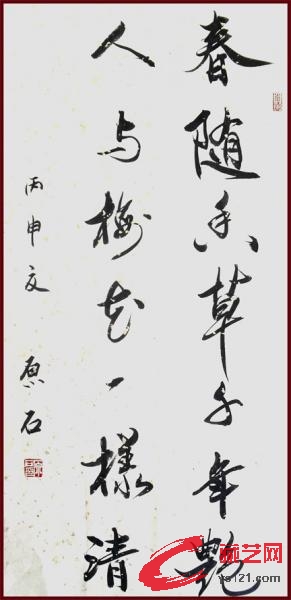 春随香草千年艷
人与梅花一樣清
丙申夏 石
艺网
ys121.com